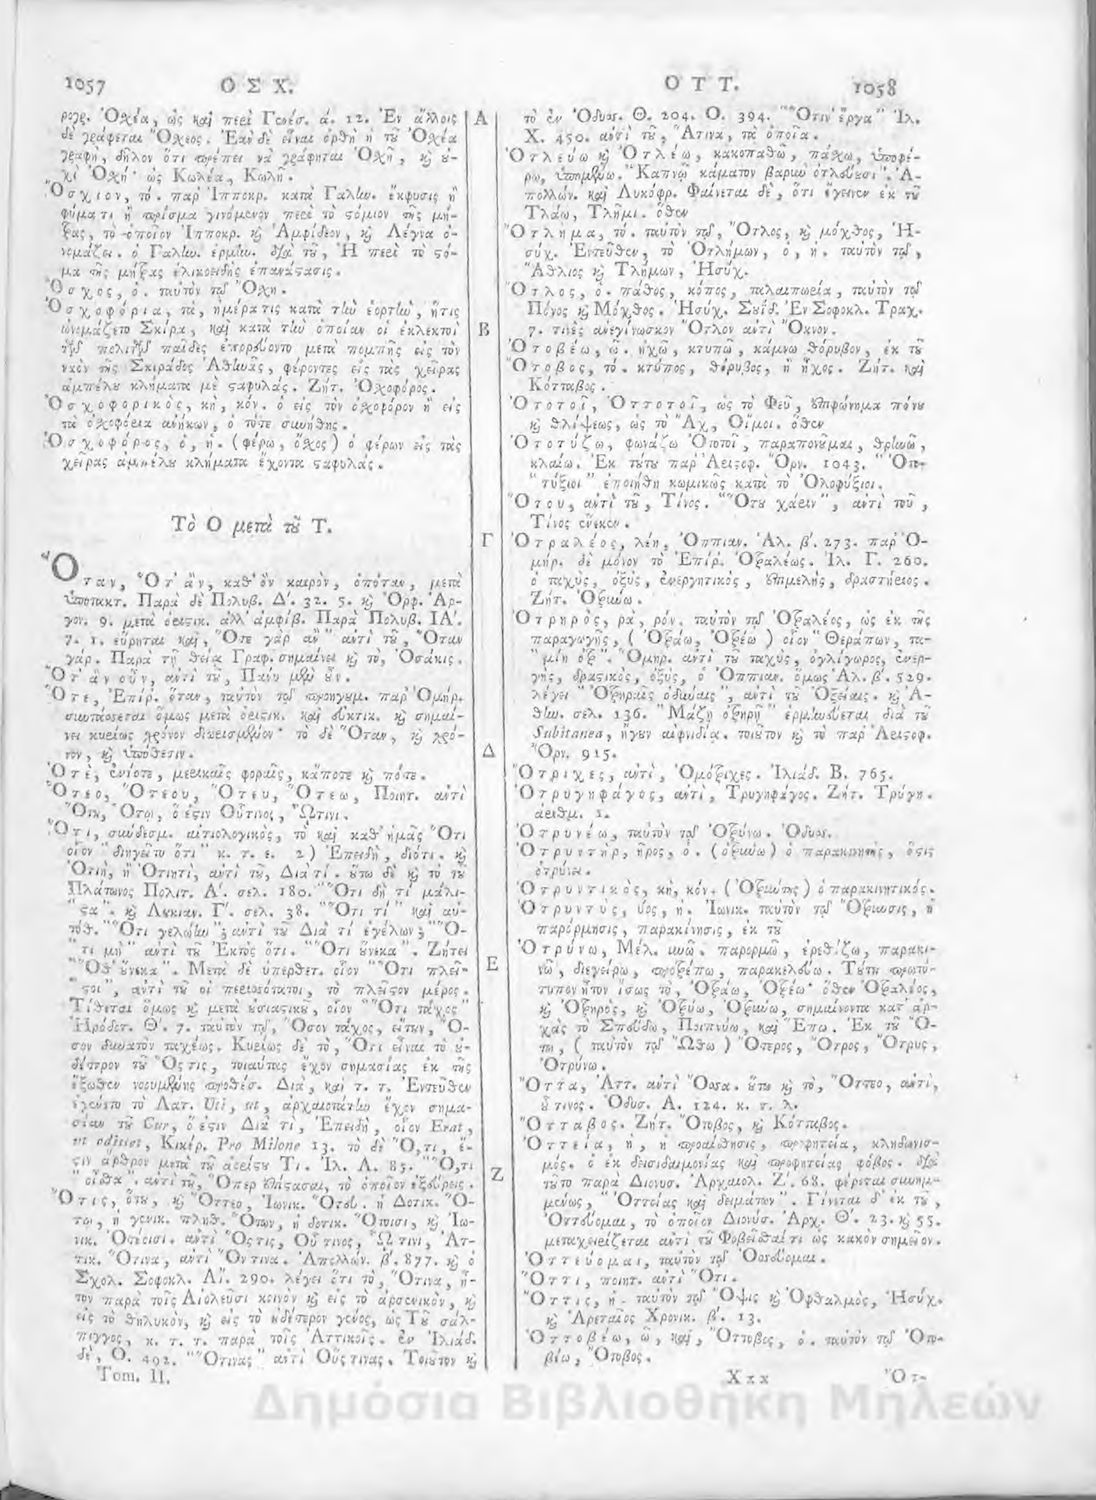 1057 ΟΣΧ.
ροχε. Ὀχέα, ὡς καὶ περὶ Γενέσ. ά. 12. Ἐν ἄλλοις
δὲ γράφεται Ὄχεος. Ἐὰν δὲ εἶναι ὀρθὴ ἡ τοῦ Ὀχέα
γραφὴ, δῆλον ὅτι πρέπει νὰ γράφηται Ὀχῆ, καὶ οὐ-
χὶ Ὀχή· ὡς Κωλέα, Κωλῆ.
Ὄσχιον, τό. παρ' Ἱπποκρ. κατὰ Γαλην. ἔκφυσις ἢ
φύμα τι ἢ πρίσμα γινόμενον περὶ τὸ στόμιον τῆς μή-
τρας, τὸ ὁποῖον Ἱπποκρ. καὶ Ἀμφίδεον, καὶ Λέγνα ὀ-
νομάζει. ὁ Γαλην. ἑρμην. διὰ τοῦ, Ἡ περὶ τὸ στό-
μα τῆς μήτρας ἑλικοειδὴς ἐπανάστασις.
Ὄσχος, ὁ. ταὐτὸν τῷ Ὄσχη.
Ὀσχοφόρια, τὰ, ἡμέρα τις κατὰ τὴν ἑορτὴν, ἥτις
ὠνομάζετο Σκίρα, καὶ κατὰ τὴν ὁποίαν οἱ ἐκλεκτοὶ
τῶν πολιτῶν παῖδες ἐπορεύοντο μετὰ πομπῆς εἰς τὸν
ναὸν τῆς Σκιράδος Ἀθηνᾶς, φέροντες εἰς τὰς χεῖρας
ἀμπέλου κλήματα μὲ σταφυλάς. Ζήτ. Ὀσχοφόρος.
Ὀσχοφορικὸς, κὴ, κόν. ὁ εἰς τὸν ὀσχοφόρον ἢ εἰς
τὰ ὀσχοφόρια ἀνήκων, ὁ τότε συνήθης.
Ὀσχοφόρος, ὁ, ἡ. (φέρω, ὄσχος) ὁ φέρων εἰς τὰς
χεῖρας ἀμπέλου κλήματα ἔχοντα σταφυλάς.
Τὸ Ο μετὰ τοῦ Τ.
Ὅταν, Ὅτ' ἂν, καθ' ὃν καιρὸν, ὁπόταν, μετὰ
ὑποτακτ. Παρὰ δὲ Πολυβ. Δ΄. 32. 5. καὶ Ὀρφ. Ἀρ-
γον. 9. μετὰ ὁριστικ. ἀλλ' ἀμφίβ. Παρὰ Πολυβ. ΙΑ΄.
7. 1. εὕρηται καὶ, Ὅτε γὰρ ἂν" ἀντὶ τοῦ, "Ὅταν
γάρ. Παρὰ τῇ θείᾳ Γραφ. σημαίνει καὶ τὸ, Ὁσάκις.
Ὅτ' ἂν οὖν, ἀντὶ τοῦ, Πάνυ μὲν οὖν.
Ὅτε, Ἐπίρ. ὅταν, ταὐτὸν τῷ προηγουμ. παρ' Ὁμήρ.
συντάσσεται ὅμως μετὰ ὁριστικ. καὶ εὐκτικ. καὶ σημαί-
νει κυρίως χρόνον διωρισμένον· τὸ δὲ Ὅταν, καὶ χρό-
νον, καὶ ὑπόθεσιν.
Ὁτὲ, ἐνίοτε, μερικαῖς φοραῖς, κάποτε καὶ πότε.
Ὅτεο, Ὅτεου, Ὅτευ, Ὅτεω, Ποιητ. ἀντὶ
Ὅτου, Ὅτῳ, ὅ ἐστιν Οὗτινος, ᾯτινι.
Ὅτι, σύνδεσμ. αἰτιολογικὸς, τὸ καὶ καθ' ἡμᾶς Ὅτι
οἷον "διηγεῖτο ὅτι" κ. τ. ἑ. 2) Ἐπειδὴ, διότι. καὶ
Ὁτιὴ, ἢ Ὁτιητί, ἀντὶ τοῦ, Διατί. οὕτω δὲ καὶ τὸ τοῦ
Πλάτωνος Πολιτ. Α΄. σελ. 180. "Ὅτι δὴ τί μάλι-
"στα". καὶ Λουκιαν. Γ΄. σελ. 38. "Ὅτι τί" καὶ αὐ-
τόθ. "Ὅτι γελώην"; ἀντὶ τοῦ Διὰ τί ἐγέλων; "Ὅ-
"τι μὴ" ἀντὶ τοῦ Ἐκτὸς ὅτι. "Ὅτι οὕνεκα". Ζήτει
"Ὅθ' οὕνεκα". Μετὰ δὲ ὑπερθετ. οἷον "Ὅτι πλεῖ-
"στοι", ἀντὶ τοῦ οἱ περισσότατοι, τὸ πλεῖστον μέρος.
Τίθεται ὅμως καὶ μετὰ οὐσιαστικοῦ, οἷον "Ὅτι τάχος"
Ἡρόδοτ. Θ΄. 7. ταὐτὸν τῷ, Ὅσον τάχος, εἴτουν, Ὅ-
σον δυνατὸν ταχέως. Κυρίως δὲ τὸ, Ὅτι εἶναι τὸ οὐ-
δέτερον τοῦ Ὅστις, τοιαύτας ἔχον σημασίας ἐκ τῆς
ἔξωθεν νοουμένης προθέσ. Διὰ, καὶ τ. τ. Ἐντεῦθεν
ἐγένετο τὸ Λατ. Uti, ut, ἀρχαιοτάτην ἔχον σημα-
σίαν τοῦ Cur, ὅ ἐστιν Διὰ τί, Ἐπειδὴ, οἷον Erat,
ut odisset, Κικέρ. Pro Milone 13. τὸ δὲ Ὅ,τι, ἔ-
στιν ἄρθρον μετὰ τοῦ ἀορίστου Τι. Ἰλ. Α. 85. "Ὅ,τι
"οἶσθα". ἀντὶ τοῦ, Ὅπερ ἐπίστασαι, τὸ ὁποῖον ἐξεύρεις.
Ὅτις, ὅτου, καὶ Ὅττεο, Ἰωνικ. Ὅτευ. ἡ Δοτικ. Ὅ-
τῳ, ἡ γενικ. πληθ. Ὅτων, ἡ δοτικ. Ὅτοισι, καὶ Ἰω-
νικ. Ὁτέοισι. ἀντὶ Ὅστις, Οὗτινος, ᾯτινι, Ἀτ-
τικ. Ὅτινα, ἀντὶ Ὅντινα. Ἀπολλων. β΄. 877. καὶ ὁ
Σχολ. Σοφοκλ. Αἴ. 290. λέγει ὅτι τὸ, Ὅτινα, ἦ-
τον παρὰ τοῖς Αἰολεῦσι κοινὸν καὶ εἰς τὸ ἀρσενικὸν, καὶ
εἰς τὸ θηλυκὸν, καὶ εἰς τὸ οὐδέτερον γένος, ὡς Τοῦ σάλ-
πιγγος, κ. τ. τ. παρὰ τοῖς Ἀττικοῖς. ἐν Ἰλιάδ.
δὲ, Ο. 492. "Ὅτινας" ἀντὶ Οὕστινας. Τοιοῦτον καὶ
Tom. II.
Α
Β
Γ
Δ
Ε
Ζ
ΟΤΤ. 1058
τὸ ἐν Ὀδυσσ. Θ. 204. Ο. 394. "Ὅτιν' ἔργα" Ἰλ.
Χ. 450. ἀντὶ τοῦ, Ἅτινα, τὰ ὁποῖα.
Ὀτλεύω καὶ Ὀτλέω, κακοπαθῶ, πάσχω, ὑποφέ-
ρω, ὑπομένω. "Καπνῷ κάματον βαρὺν ὀτλεύουσι". Ἀ-
πολλών. καὶ Λυκόφρ. Φαίνεται δὲ, ὅτι ἔγεινεν ἐκ τοῦ
Τλάω, Τλῆμι. ὅθεν
Ὄτλημα, τό. ταὐτὸν τῷ, Ὄτλος, καὶ μόχθος, Ἡ-
σύχ. Ἐντεῦθεν, τὸ Ὀτλήμων, ὁ, ἡ. ταὐτὸν τῷ,
Ἄθλιος καὶ Τλήμων, Ἡσύχ.
Ὄτλος, ὁ. πάθος, κόπος, ταλαιπωρία, ταὐτὸν τῷ
Πόνος καὶ Μόχθος. Ἡσύχ. Σουΐδ. Ἐν Σοφοκλ. Τραχ.
7. τινὲς ἀνεγίνωσκον Ὄτλον ἀντὶ Ὄκνον.
Ὀτοβέω, ῶ. ἠχῶ, κτυπῶ, κάμνω θόρυβον, ἐκ τοῦ
Ὄτοβος, το. κτύπος, θόρυβος, ἢ ἦχος. Ζήτ. καὶ
Κότταβος.
Ὀτοτοῖ, Ὀττοτοῖ, ὡς τὸ Φεῦ, ἐπιφώνημα πόνου
καὶ θλίψεως, ὡς τὸ Ἂχ, Οἴμοι. ὅθεν
Ὀτοτύζω, φωνάζω Ὀτοτοῖ, παραπονοῦμαι, θρηνῶ,
κλαίω. Ἐκ τούτου παρ' Ἀριστοφ. Ὄρν. 1043. "Ὀτο-
"τύξιοι" ἐποιήθη κωμικῶς κατὰ τὸ Ὀλοφύξιοι.
Ὅτου, ἀντὶ τοῦ, Τίνος. "Ὅτου χάριν", ἀντὶ τοῦ,
Τίνος ἕνεκεν.
Ὀτραλέος, λέη, Ὀππιαν. Ἁλ. β΄. 273. παρ' Ὁ-
μήρ. δὲ μόνον τὸ Ἐπίρ. Ὀτραλέως. Ἰλ. Γ. 260.
ὁ ταχὺς, ὀξὺς, ἐνεργητικὸς, ἐπιμελὴς, δραστήριος.
Ζήτ. Ὀτρύνω.
Ὀτρηρὸς, ρὰ, ρόν. ταὐτὸν τῷ Ὀτραλέος, ὡς ἐκ τῆς
παραγωγῆς, (Ὀτράω, Ὀτρέω) οἷον "Θεράπων, τα-
"μίη ὀτρ". Ὁμηρ. ἀντὶ τοῦ ταχὺς, ὀγλίγωρος, ἐνερ-
γὴς, δραστικὸς, ὀξὺς, ὁ Ὀππιαν. ὅμως Ἁλ. β΄. 529.
λέγει "Ὀτρηραῖς ὀδύναις", ἀντὶ τοῦ Ὀξείαις. καὶ Ἀ-
θην. σελ. 136. "Μάζῃ ὀτρηρῇ" ἑρμηνεύεται διὰ τοῦ
Subitanea, ἤγουν αἰφνιδία. τοιοῦτον καὶ τὸ παρ' Ἀριστοφ.
Ὄρν. 915.
Ὄτριχες, ἀντὶ, Ὁμότριχες. Ἰλιάδ. Β. 765.
Ὀτρυγηφάγος, ἀντὶ, Τρυγηφάγος. Ζήτ. Τρύγη.
ἀριθμ. 1.
Ὀτρυνέω, ταὐτὸν τῷ Ὀτρύνω. Ὀδυσσ.
Ὀτρυντὴρ, ῆρος, ὁ. (ὀτρύνω) ὁ παρακινητὴς, ὅστις
ὀτρύνει.
Ὀτρυντικὸς, κὴ, κόν. (Ὀτρύντης) ὁ παρακινητικός.
Ὀτρυντὺς, ύος, ἡ. Ἰωνικ. ταὐτὸν τῷ Ὄτρυνσις, ἡ
παρόρμησις, παρακίνησις, ἐκ τοῦ
Ὀτρύνω, Μέλ. υνῶ. παρορμῶ, ἐρεθίζω, παρακι-
νῶ, διεγείρω, προτρέπω, παρακελεύω. Τούτου πρωτό-
τυπον ἦτον ἴσως τὸ, Ὀτράω, Ὀτρέω· ὅθεν Ὀτραλέος,
καὶ Ὀτρηρὸς, καὶ Ὀτρύω, Ὀτρύνω, σημαίνοντα κατ' ἀρ-
χὰς τὸ Σπεύδω, Ποιπνύω, καὶ Ἕπω. Ἐκ τοῦ Ὄ-
τω, (ταὐτὸν τῷ Ὤθω) Ὄτερος, Ὄτρος, Ὄτρυς,
Ὀτρύνω.
Ὅττα, Ἀττ. ἀντὶ Ὅσσα. οὕτω καὶ τὸ, Ὅττεο, ἀντὶ,
οὗ τινος. Ὀδυσ. Α. 124. κ. τ. λ.
Ὄτταβος. Ζήτ. Ὄτοβος, καὶ Κότταβος.
Ὀττεία, ἡ, ἡ προαίσθησις, προφητεία, κληδωνισ-
μός. ὁ ἐκ δεισιδαιμονίας καὶ προφητείας φόβος. διὰ
τοῦτο παρὰ Διονυσ. Ἀρχαιολ. Ζ. 68. φέρεται συνημ-
μένως, "Ὀττείας καὶ δειμάτων". Γίνεται δ' ἐκ τοῦ,
Ὀττεύομαι, τὸ ὁποῖον Διονύσ. Ἀρχ. Θ΄. 23. καὶ 55.
μεταχειρίζεται ἀντὶ τοῦ Φοβεῖσθαί τι ὡς κακὸν σημεῖον.
Ὀττεύομαι, ταὐτὸν τῷ Ὀσσεύομαι.
Ὅττι, ποιητ. ἀντὶ Ὅτι.
Ὄττις, ἡ. ταὐτὸν τῷ Ὄψις καὶ Ὀφθαλμὸς, Ἡσύχ.
καὶ Ἀρεταῖος Χρονικ. β΄. 13.
Ὀττοβέω, ῶ, καὶ, Ὄττοβος, ὁ. ταὐτὸν τῷ Ὀτο-
βέω, Ὄτοβος.
Xxx Ὀτ-
Δημόσια Βιβλιοθήκη Μηλεών